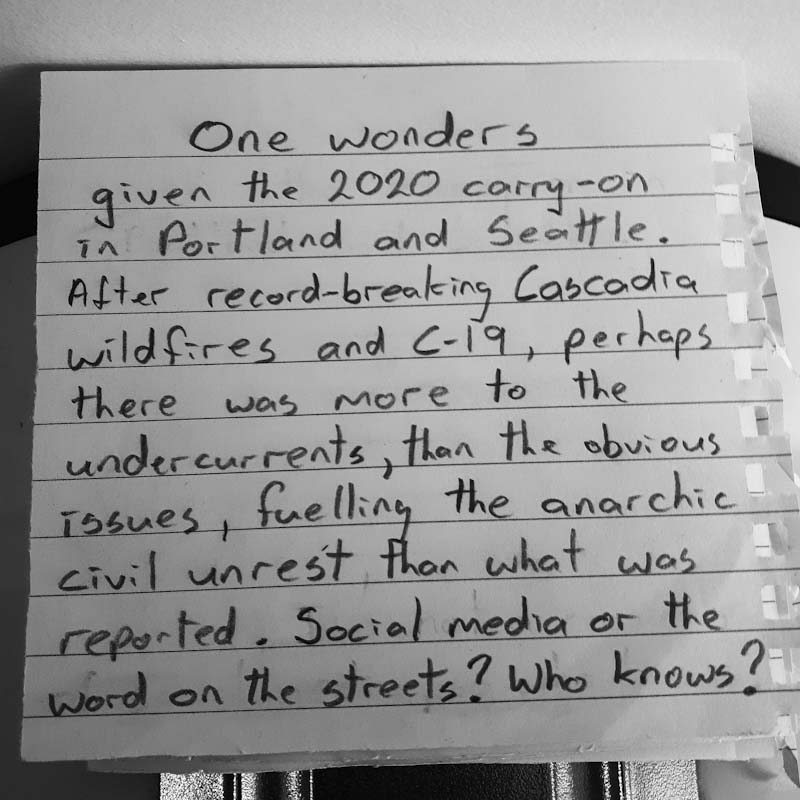 One wonders
given the 2020 carry-on
in Portland and Seattle.
After record-breaking Cascadia
wildfires and C-19, perhaps
there was more to the
undercurrents, than the obvious
issues, fuelling the anarchic
civil unrest than what was
reported. Social media or the
word on the streets? Who knows?